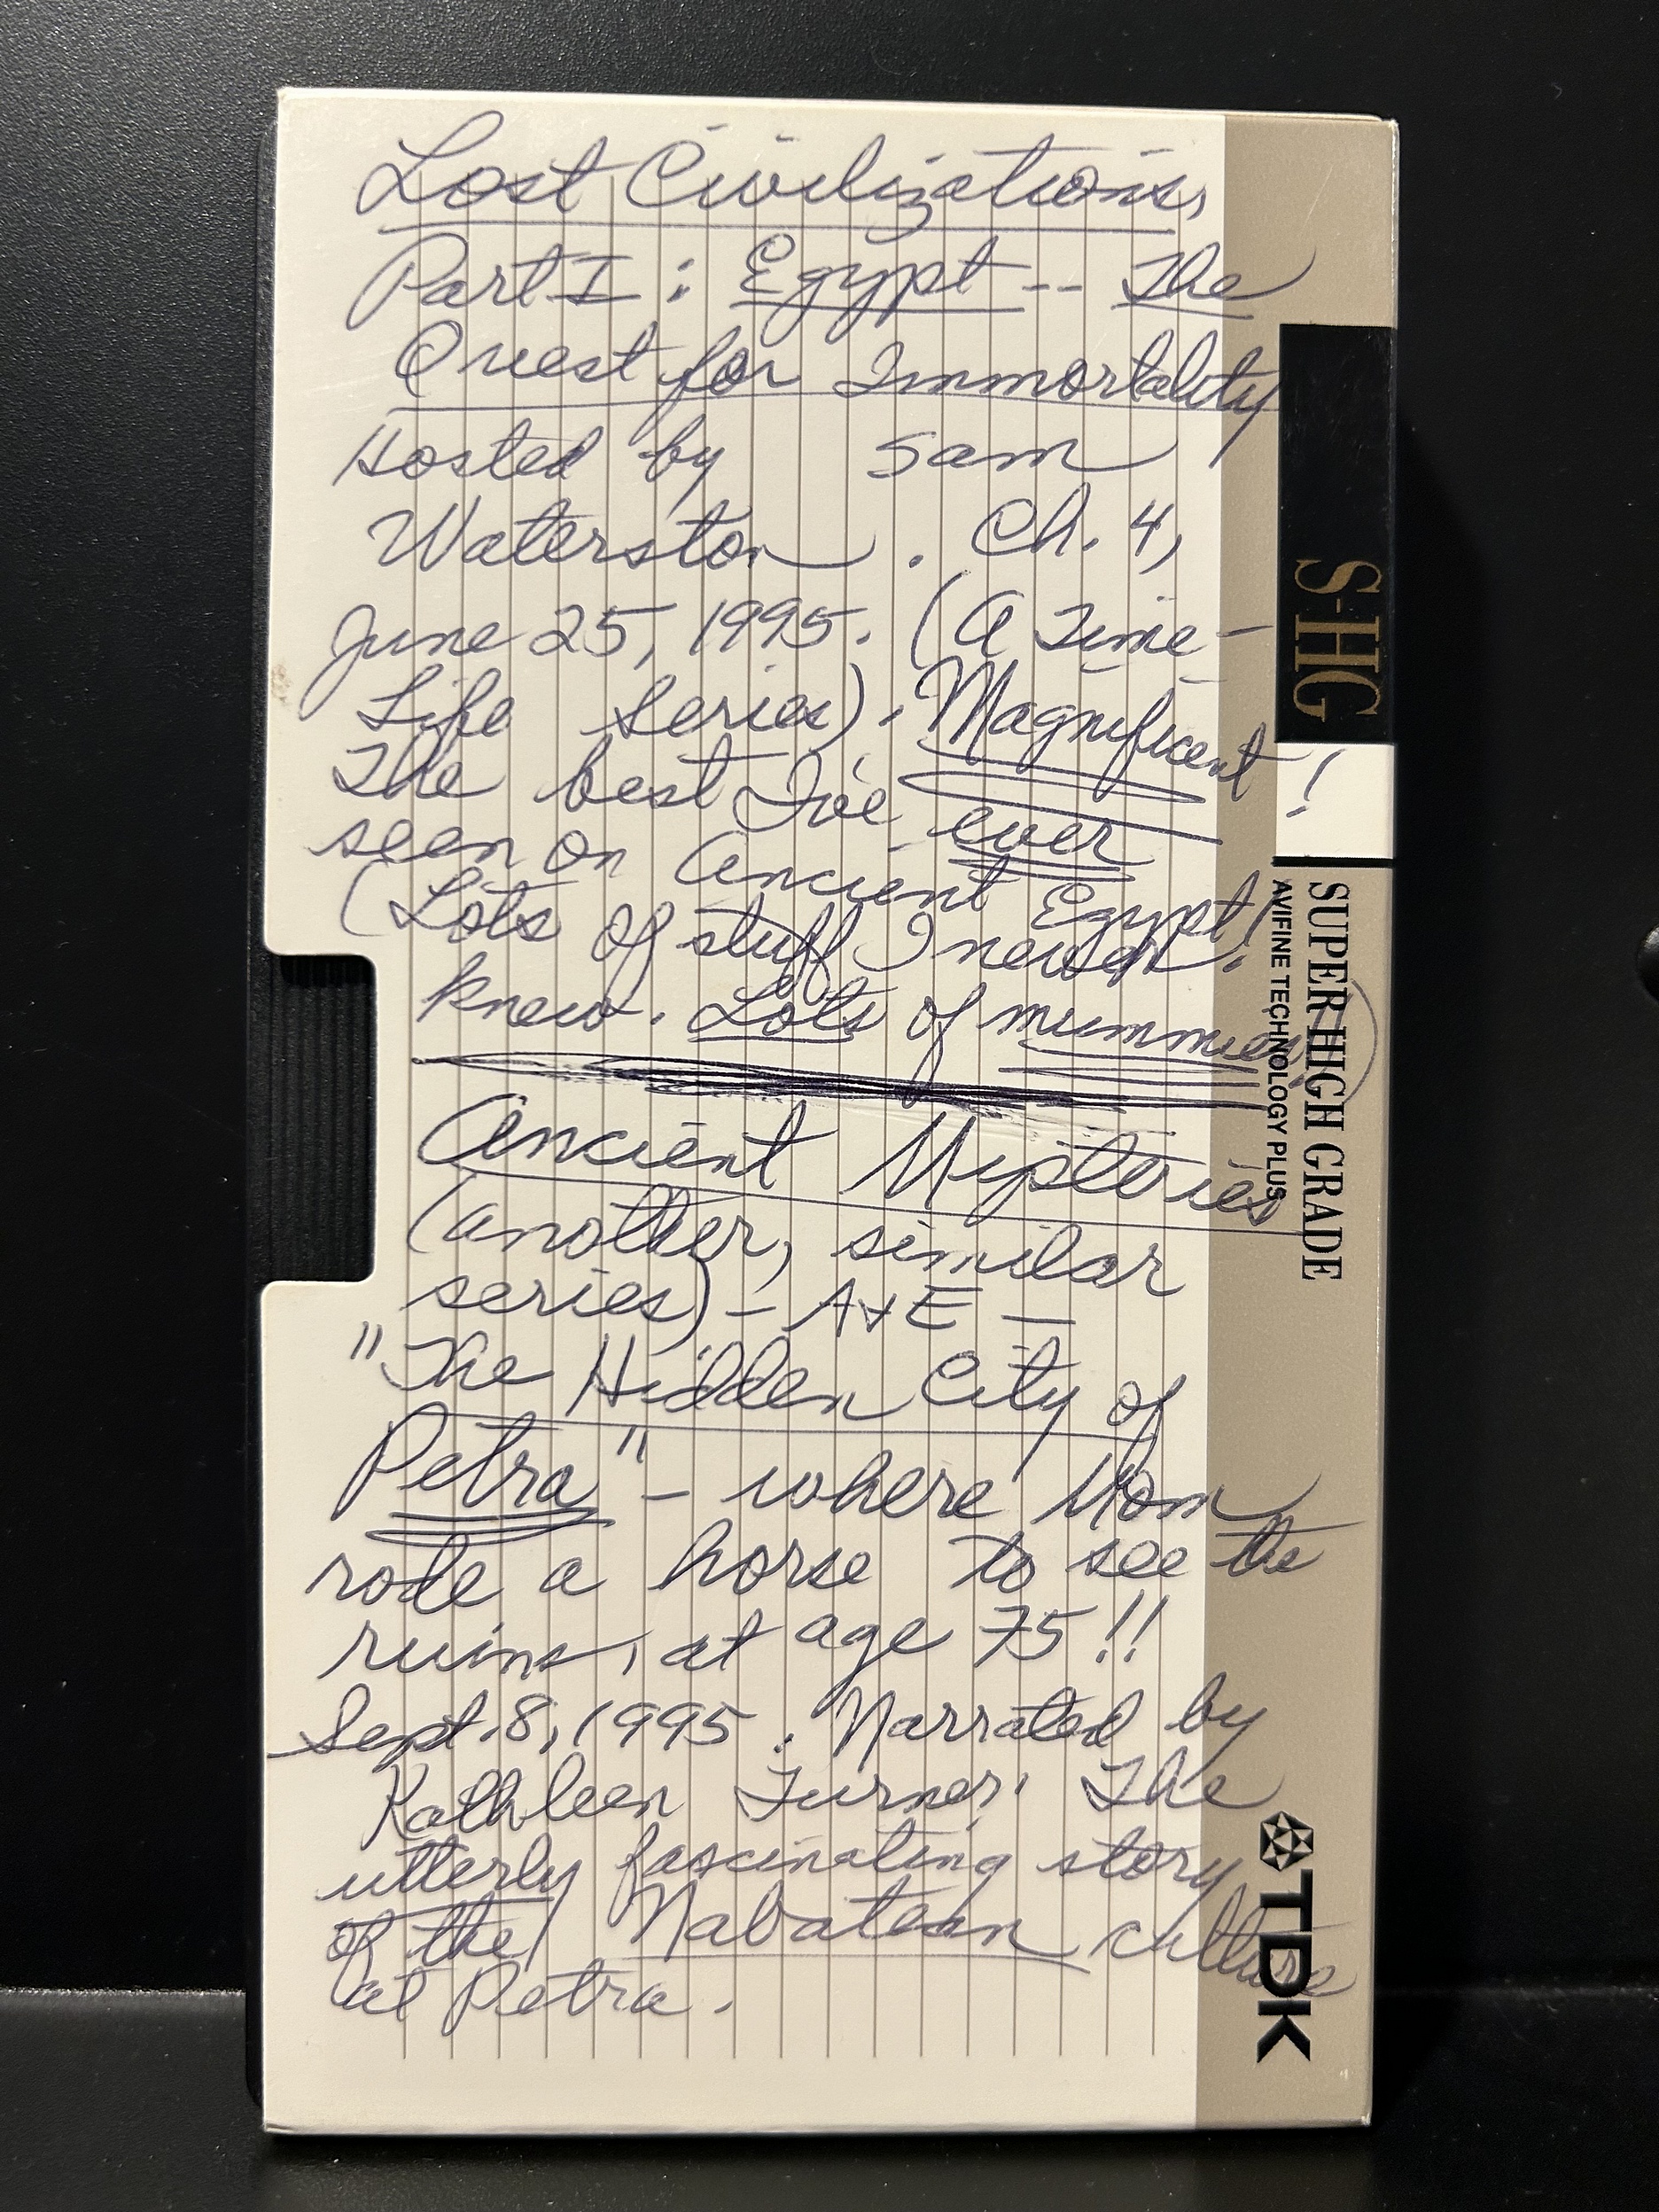 Lost Civilizations,
Part I : Egypt -- The
Quest for Immortality
Hosted by Sam
Waterston. Ch. 4,
June 25, 1995. (A Time-
Life Series). Magnificent!
The best I've ever
seen on Ancient Egypt!
(Lots of stuff I never
knew. Lots of mummies.)
Ancient Mysteries
(another, similar
series) - A+E -
"The Hidden City of
Petra" - where Mom
rode a horse to see the
ruins, at age 75!!
Sept. 8, 1995. Narrated by
Kathleen Turner. The
utterly fascinating story
of the Nabatean culture
at Petra.
S-HG
SUPER HIGH GRADE
AVIFINE TECHNOLOGY PLUS
TDK